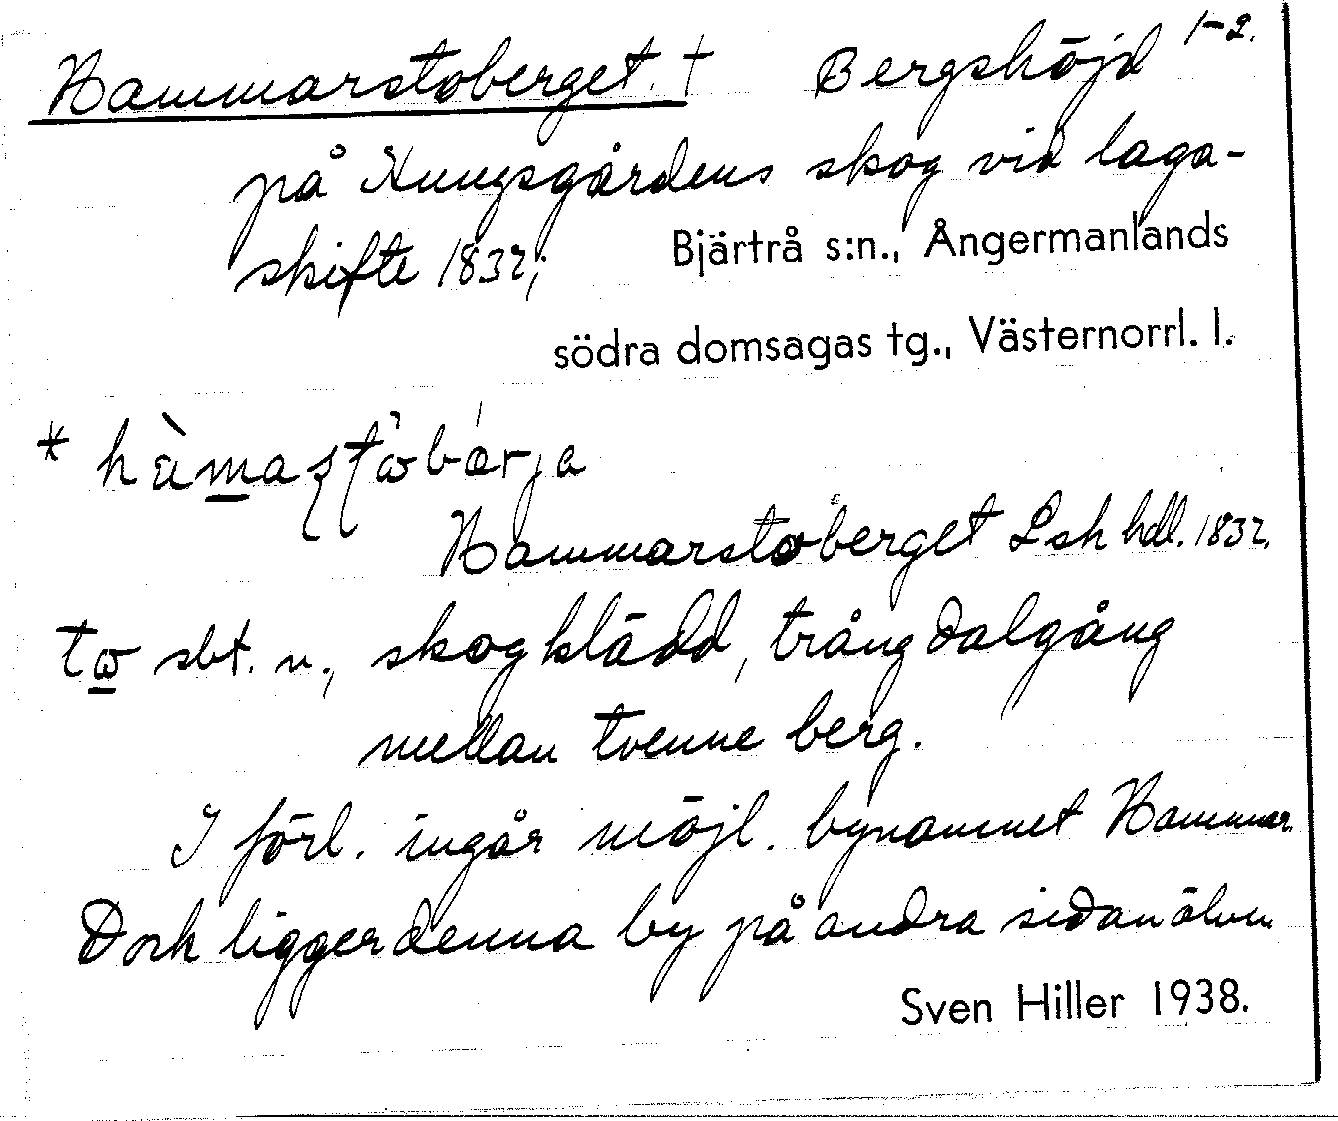 Hammarstoberget. † Bergshöjd 1-2.
på Kungsgårdens skog vid laga-
skifte 1832;
Bjärtrå s:n., Ångermanlands
södra domsagas tg., Västernorrl. l.
Hammarstoberget Lsk hdl. 1832.
sbt. n., skogklädd, trång dalgång
mellan tvenne berg.
I förl. ingår möjl. bynamnet Hammar.
Dock ligger denna by på andra sidan älven.
Sven Hiller 1938.